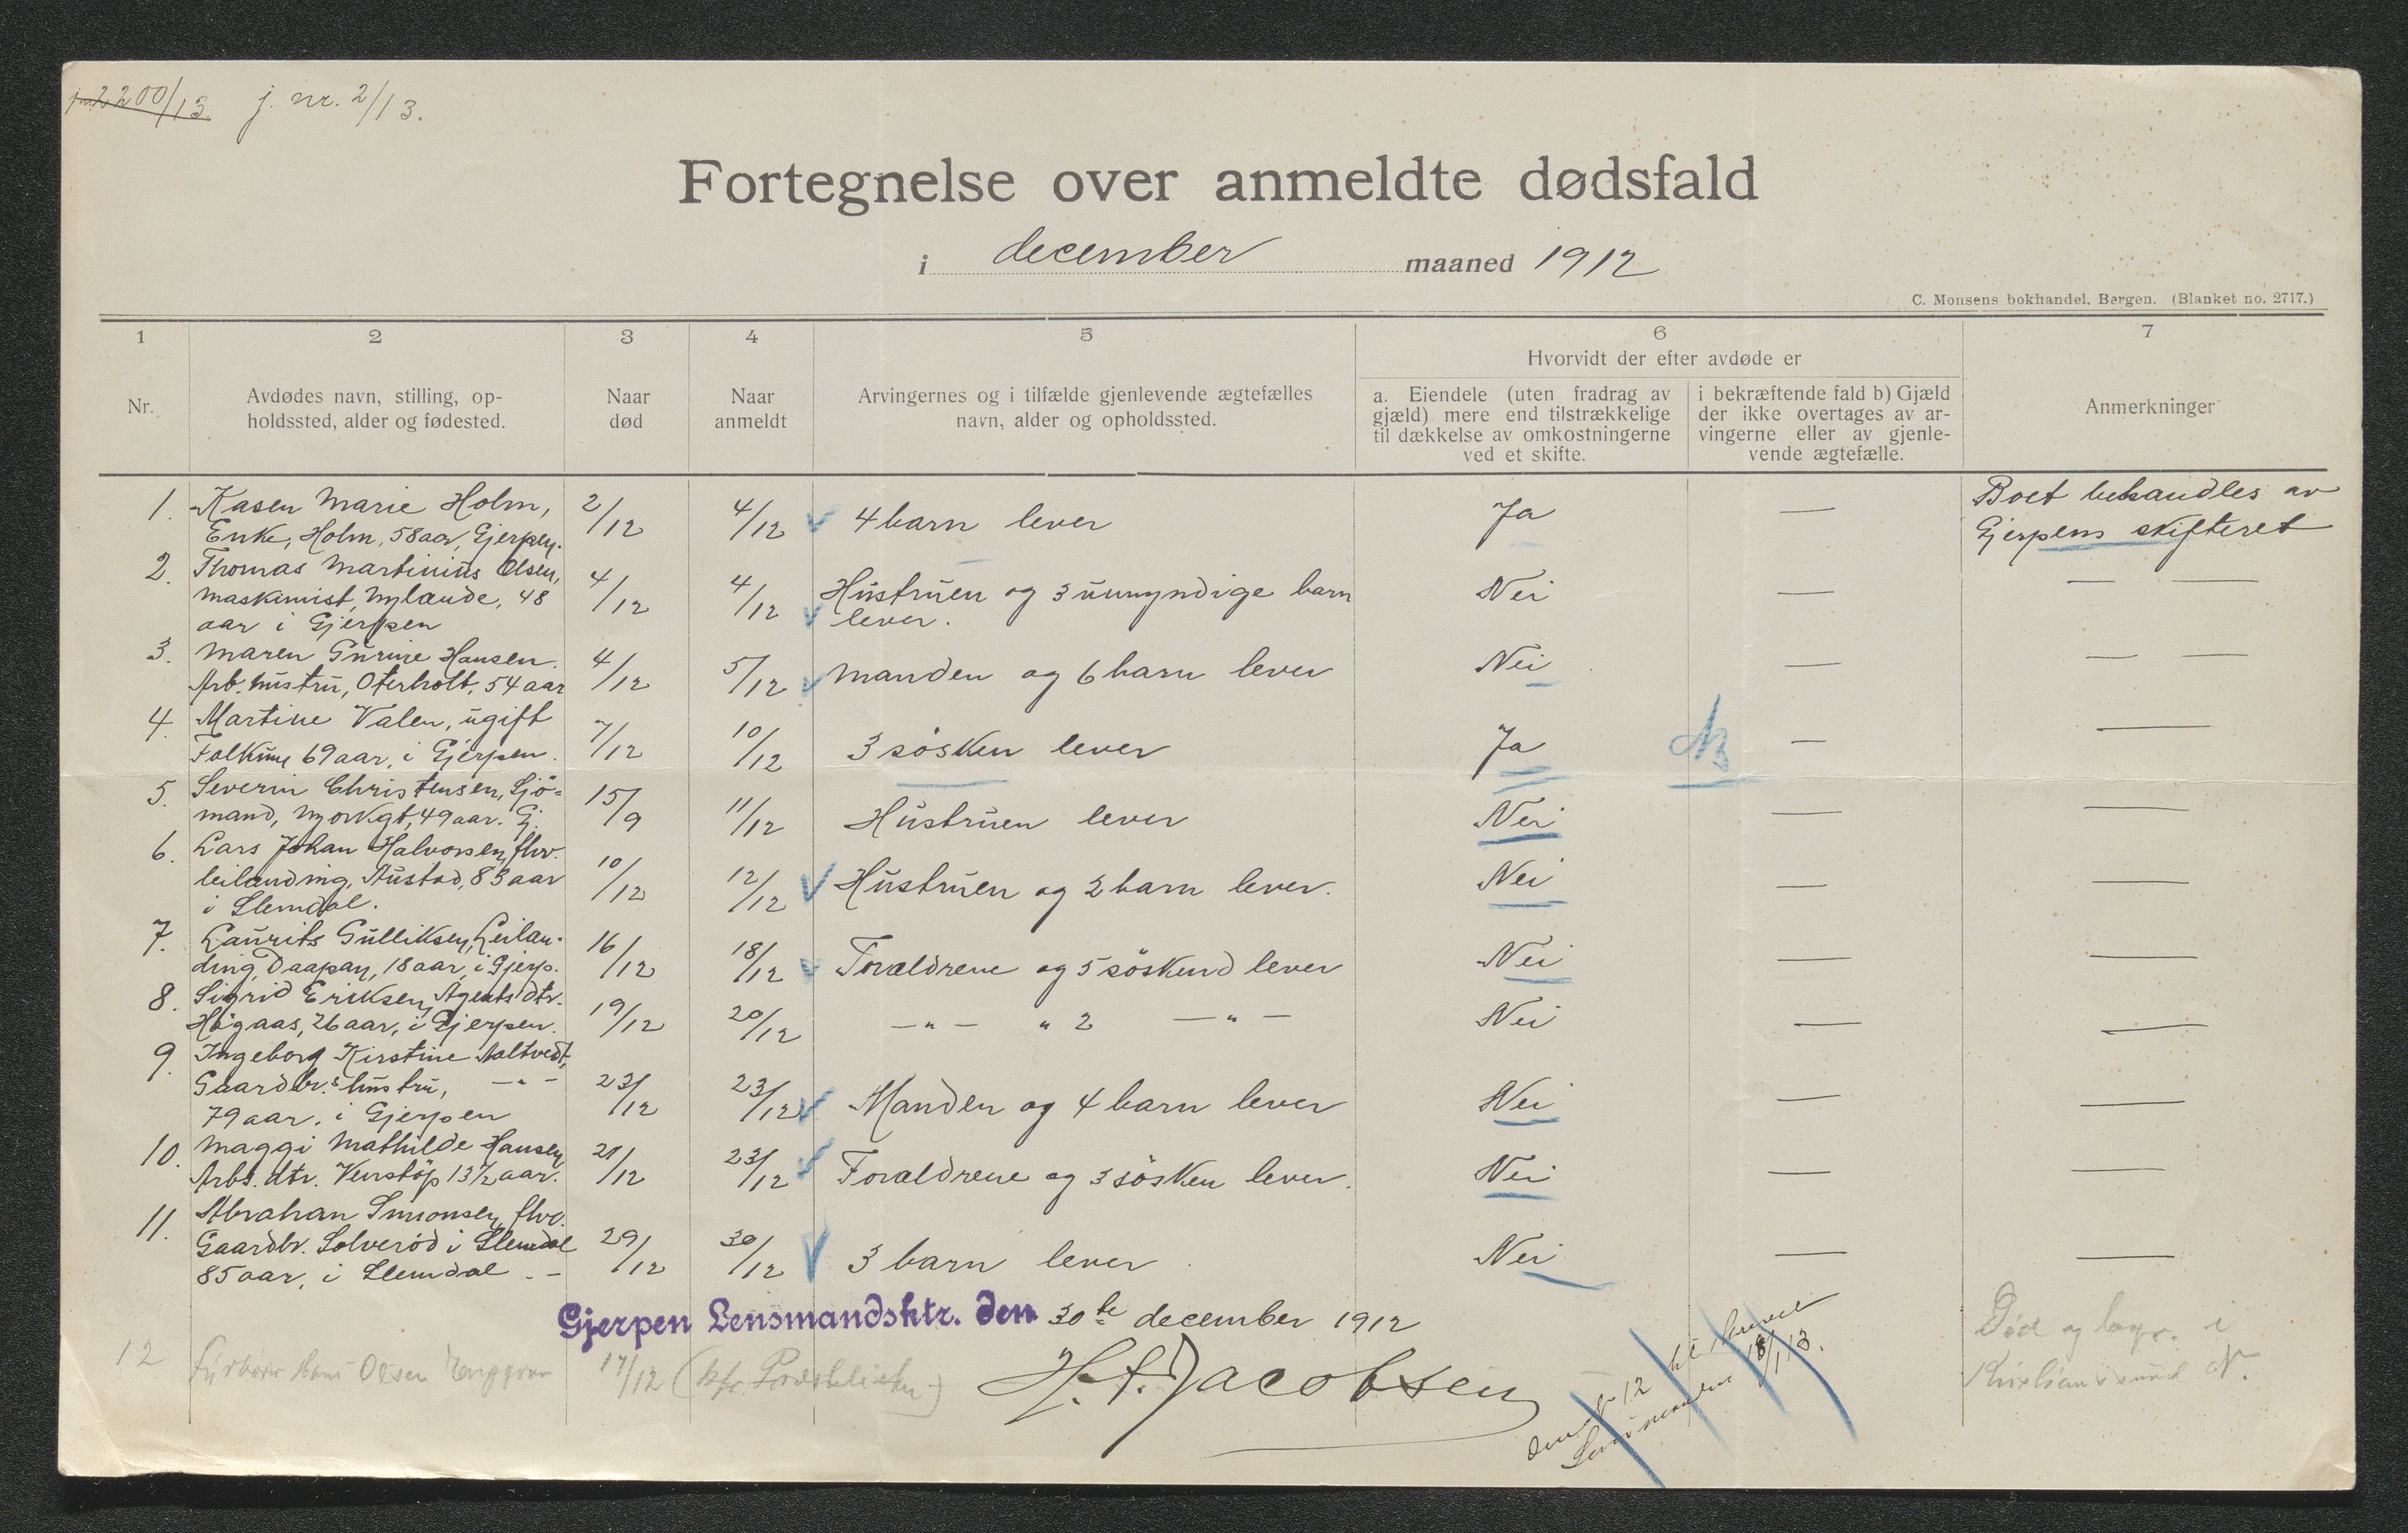 j. nr. 2/13.
Fortegnelse over anmeldte dødsfald
i december maaned 1912
C. Monsens bokhandel, Bergen. (Blanket no. 2717.)
1 2 3 4 5 6 7
Hvorvidt der efter avdøde er
Nr.
Avdødes navn, stilling, op-
holdssted, alder og fødested.
Naar
død
Naar
anmeldt
Arvingernes og i tilfælde gjenlevende ægtefælles
navn, alder og opholdssted.
a. Eiendele (uten fradrag av
gjæld) mere end tilstrækkelige
til dækkelse av omkostningerne
ved et skifte.
i bekræftende fald b) Gjæld
der ikke overtages av ar-
vingerne eller av gjenle-
vende ægtefælle.
Anmerkninger
1. Kasen Marie Holm,
Enke, Holm, 58 aar, Gjerpen.
2/12 4/12 4 barn lever Ja —
Boet behandles av
Gjerpens skifteret
2. Thomas Martinius Olsen,
maskinist, Nylænde, 48
aar i Gjerpen
4/12 4/12 Hustruen og 3 umyndige barn
lever.
Nei — — —
3. Maren Gurine Hansen.
Arb. hustru, Oterholt, 54 aar
4/12 5/12 Manden og 6 barn lever Nei — — —
4. Martine Valen, ugift
Falkum 69 aar, i Gjerpen.
7/12 10/12 3 søsken lever Ja — —
5. Severin Christensen, Sjö=
mand, Nyorkgt, 49 aar. Gj.
15/9 11/12 Hustruen lever Nei — —
6. Lars Johan Halvorsen, fhv.
leilænding, Austad, 83 aar
i Slemdal.
10/12 12/12 Hustruen og 2 barn lever. Nei — —
7. Laurits Gulliksen, Leilæn-
ding, Daapan, 18 aar, i Gjerp.
16/12 18/12 Forældrene og 5 søskend lever Nei — —
8. Sigrid Eriksen, Agents dtr.
Høgaas, 26 aar, i Gjerpen.
19/12 20/12 —"— " 2 —"— Nei — —
9. Ingeborg Kirstine Aaltvedt,
Gaardbr.s hustru, —"—
79 aar. i Gjerpen
23/12 23/12 Manden og 4 barn lever Nei — —
10. Maggi Mathilde Hansen
Arbs. dtr. Venstøp 13½ aar.
21/12 23/12 Forældrene og 3 søsken lever. Nei — —
11. Abraham Simonsen, fhv.
Gaardbr. Solverød i Slemdal
85 aar, i Slemdal. —
29/12 30/12 3 barn lever Nei — —
Gjerpen Lensmandsktr. den 30te december 1912
12 Fyrbøter Hans Olsen 17/12
H. f. Jacobsen
18/1 13.
Død og begr. i
Kristiansund N.